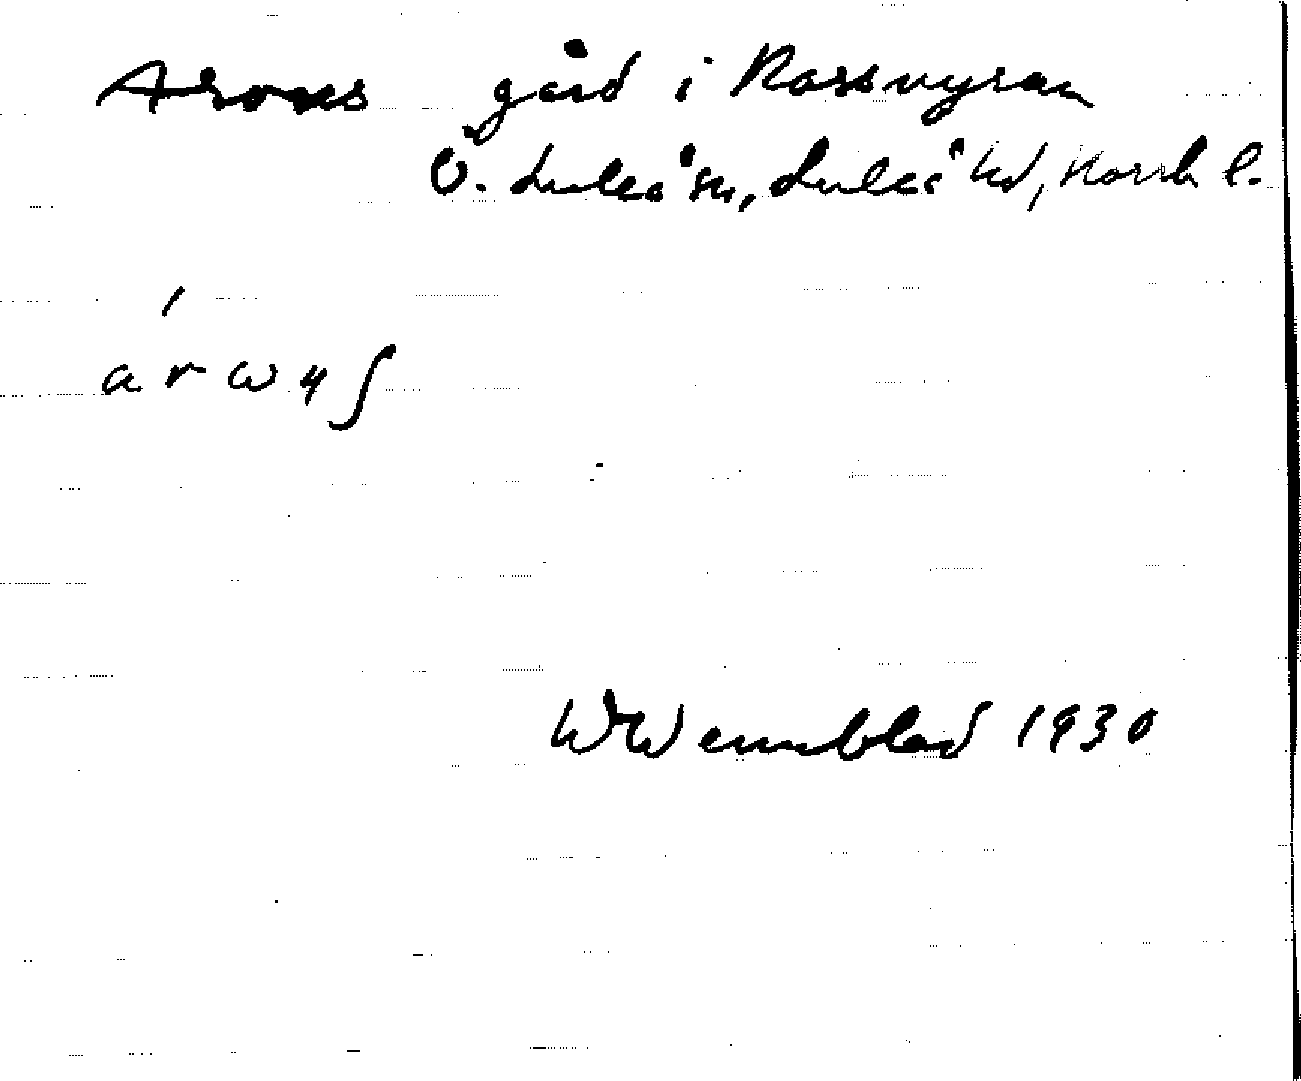 Arons gård i Rossmyran
Ö. Luleå sn, Luleå td, Norrb l.
WWennblad 1930